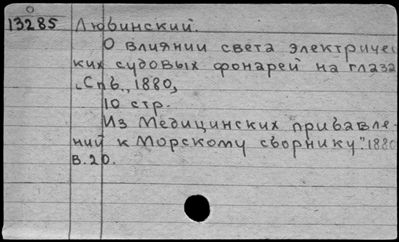 13285 Любинский.
О влиянии света электричес
ких судовых фонарей на глаза
„Спб., 1880,
10 стр.
Из Медицинских прибавле-
ний к Морскому сборнику". 1880
в.20.